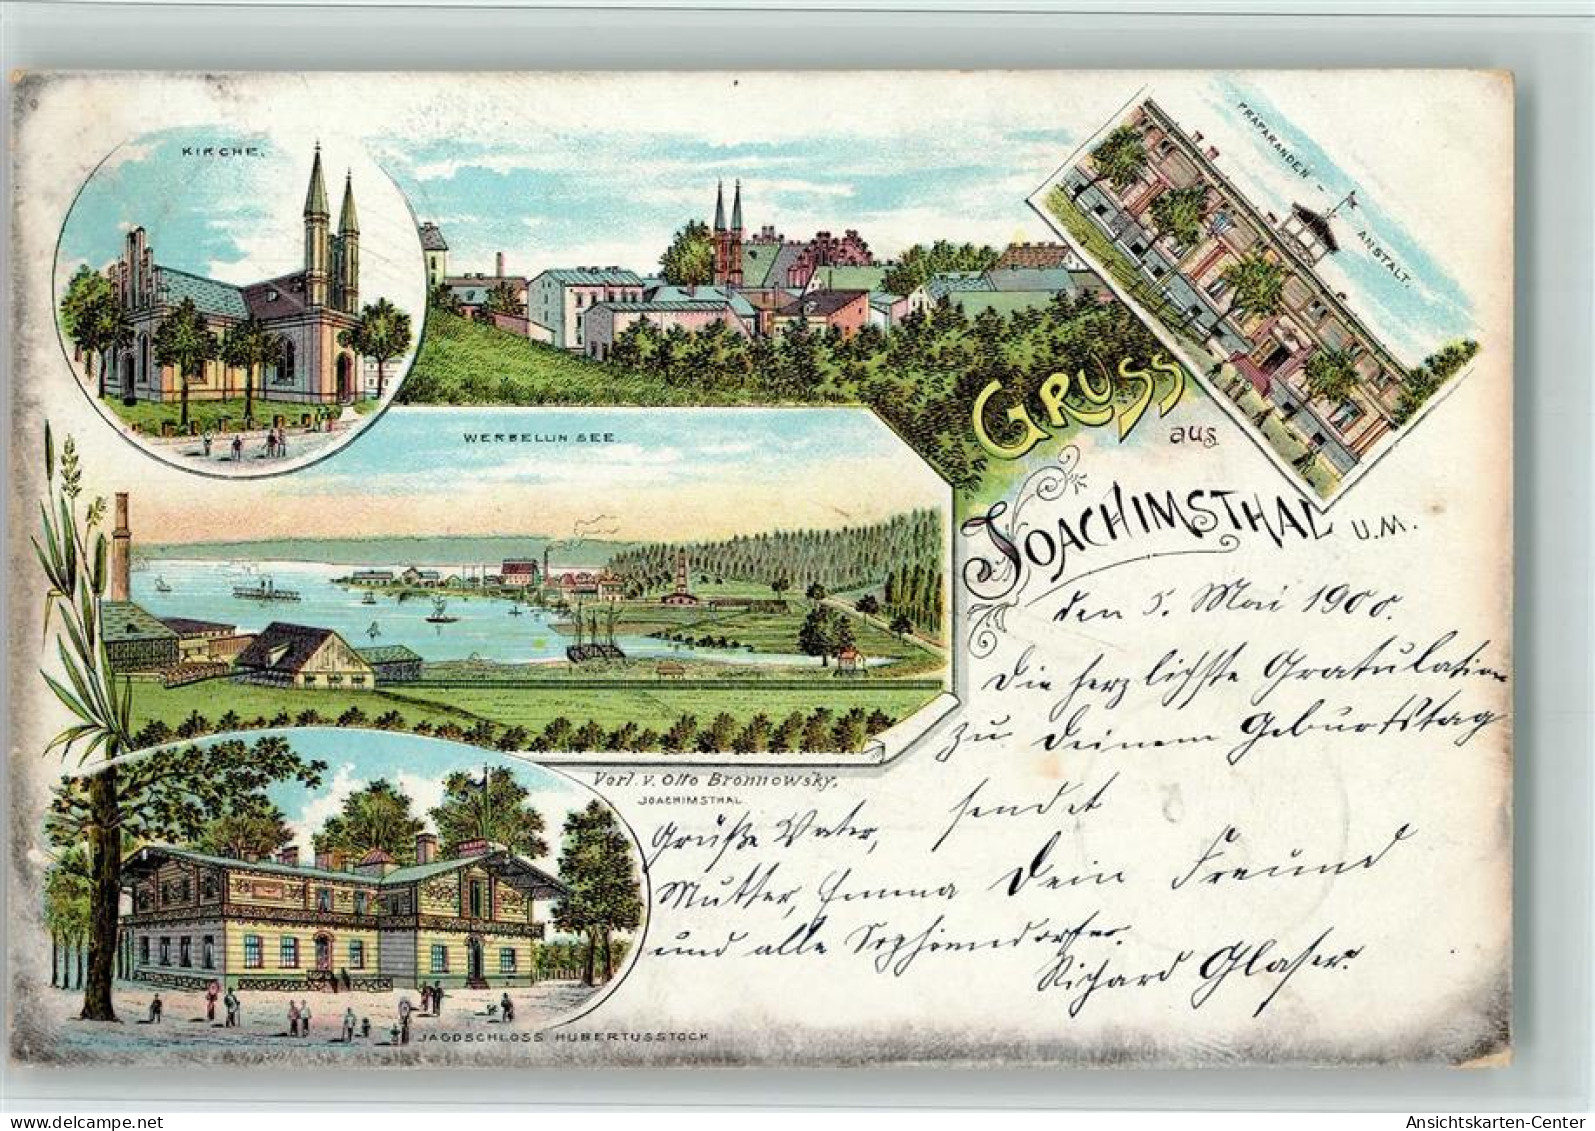 KIRCHE.
PRÄPARANDEN - ANSTALT.
WERBELLIN SEE.
GRUSS
aus
JOACHIMSTHAL U.M.
den 5. Mai 1900.
Die herzlichste Gratulation
zu Deinem Geburtstag
sendet
Dein Freund
Richard Glaser.
Verl. v. Otto Bronnowsky,
JOACHIMSTHAL
Grüße Vater,
Mutter, Emma
und alle
JAGDSCHLOSS HUBERTUSSTOCK
www.delcampe.net
Ansichtskarten-Center